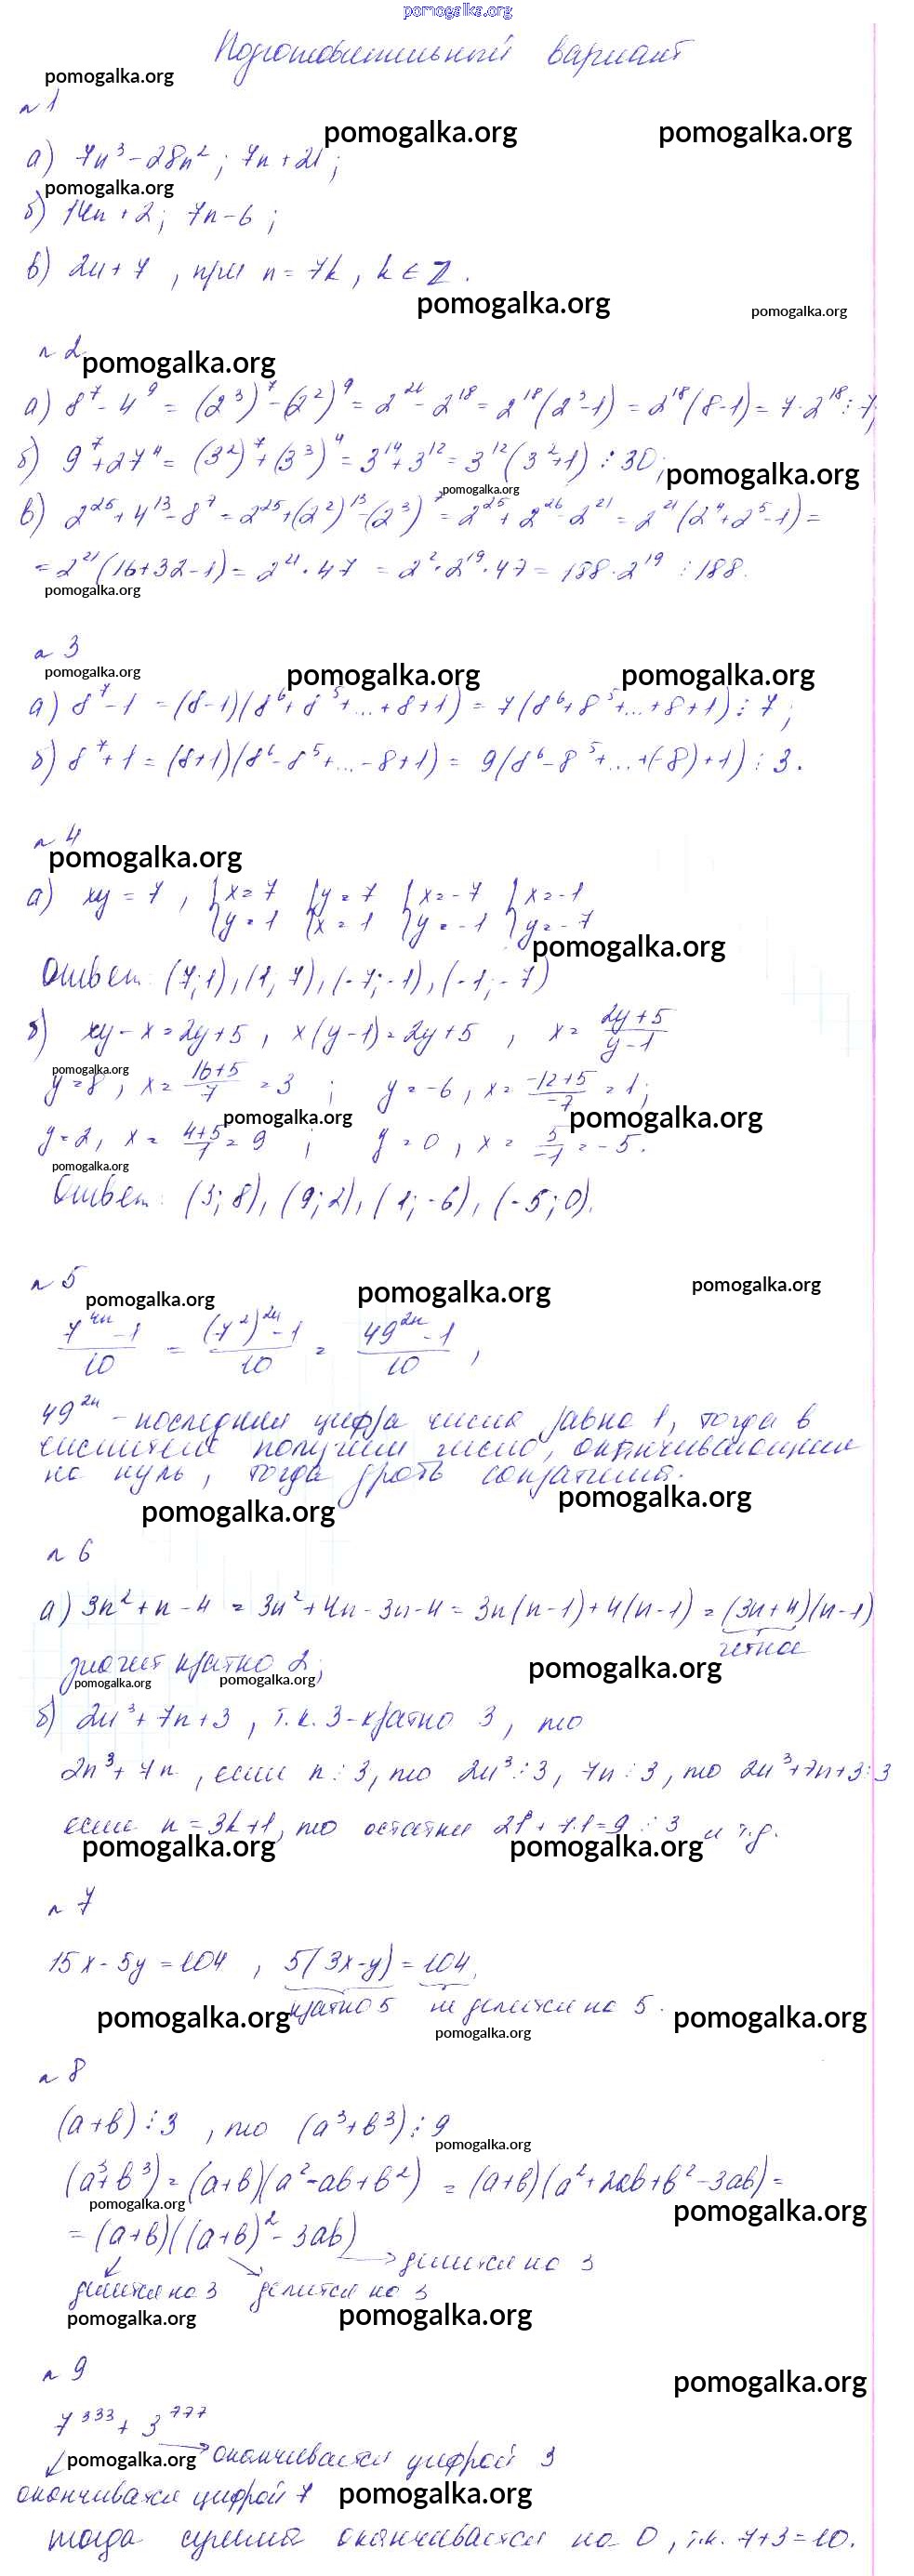 pomogalka.org
Подготовительный вариант
pomogalka.org
№1
pomogalka.org pomogalka.org
а) 7n³ - 28n² ; 7n + 21 ;
pomogalka.org
б) 14n + 2 ; 7n - 6 ;
в) 2n + 7 , при n = 7k , k ∈ Z .
pomogalka.org pomogalka.org
№2
pomogalka.org
а) 8⁷ - 4⁹ = (2³)⁷ - (2²)⁹ = 2²¹ - 2¹⁸ = 2¹⁸(2³-1) = 2¹⁸(8-1) = 7·2¹⁸ ⋮ 7;
б) 9⁷ + 27⁴ = (3²)⁷ + (3³)⁴ = 3¹⁴ + 3¹² = 3¹²(3²+1) ⋮ 30;
pomogalka.org
pomogalka.org
в) 2²⁵ + 4¹³ - 8⁷ = 2²⁵ + (2²)¹³ - (2³)⁷ = 2²⁵ + 2²⁶ - 2²¹ = 2²¹(2⁴ + 2⁵ - 1) =
= 2²¹(16 + 32 - 1) = 2²¹ · 47 = 2² · 2¹⁹ · 47 = 188 · 2¹⁹ ⋮ 188.
pomogalka.org
№3
pomogalka.org pomogalka.org pomogalka.org
а) 8⁷ - 1 = (8-1)(8⁶ + 8⁵ + ... + 8 + 1) = 7(8⁶ + 8⁵ + ... + 8 + 1) ⋮ 7 ;
б) 8⁷ + 1 = (8+1)(8⁶ - 8⁵ + ... - 8 + 1) = 9(8⁶ - 8⁵ + ... + (-8) + 1) ⋮ 3 .
№4
pomogalka.org
а) xy = 7 , { x = 7 { y = 7 { x = -7 { x = -1
y = 1 x = 1 y = -1 y = -7
pomogalka.org
Ответ: (7;1), (1;7), (-7;-1), (-1;-7)
б) xy - x = 2y + 5 , x(y-1) = 2y + 5 , x = (2y+5)/(y-1)
pomogalka.org
y = 8 , x = (16+5)/7 = 3 ; y = -6 , x = (-12+5)/-7 = 1;
pomogalka.org pomogalka.org
y = 2, x = (4+5)/1 = 9 ; y = 0 , x = 5/-1 = -5.
pomogalka.org
Ответ: (3;8), (9;2), (1;-6), (-5;0).
№5
pomogalka.org pomogalka.org pomogalka.org
(7⁴ⁿ - 1)/10 = ((7²)²ⁿ - 1)/10 = (49²ⁿ - 1)/10 ,
49²ⁿ - последняя цифра числа равна 1, тогда в
числителе получим число, оканчивающееся
на нуль, тогда дробь сократима.
pomogalka.org pomogalka.org
№6
а) 3n² + n - 4 = 3n² + 4n - 3n - 4 = 3n(n-1) + 4(n-1) = (3n+4)(n-1)
четное
значит кратно 2;
pomogalka.org
pomogalka.org pomogalka.org
б) 2n³ + 7n + 3 , т.к. 3 - кратно 3 , то
2n³ + 7n , если n ⋮ 3, то 2n³ ⋮ 3, 7n ⋮ 3, то 2n³ + 7n + 3 ⋮ 3
если n = 3k + 1, то остатки 2·1³ + 7·1 = 9 ⋮ 3 и т.д.
pomogalka.org pomogalka.org
№7
15x - 5y = 104 , 5(3x - y) = 104.
кратно 5 не делится на 5 .
pomogalka.org pomogalka.org
pomogalka.org
№8
(a+b) ⋮ 3 , то (a³ + b³) ⋮ 9
pomogalka.org
(a³ + b³) = (a+b)(a² - ab + b²) = (a+b)(a² + 2ab + b² - 3ab) =
pomogalka.org pomogalka.org
= (a+b)((a+b)² - 3ab)
делится на 3
делится на 3 делится на 3
pomogalka.org pomogalka.org
№9
pomogalka.org
7³³³ + 3⁷⁷⁷
оканчивается цифрой 3
pomogalka.org
оканчивается цифрой 7
pomogalka.org
тогда сумма оканчивается на 0 , т.к. 7 + 3 = 10.